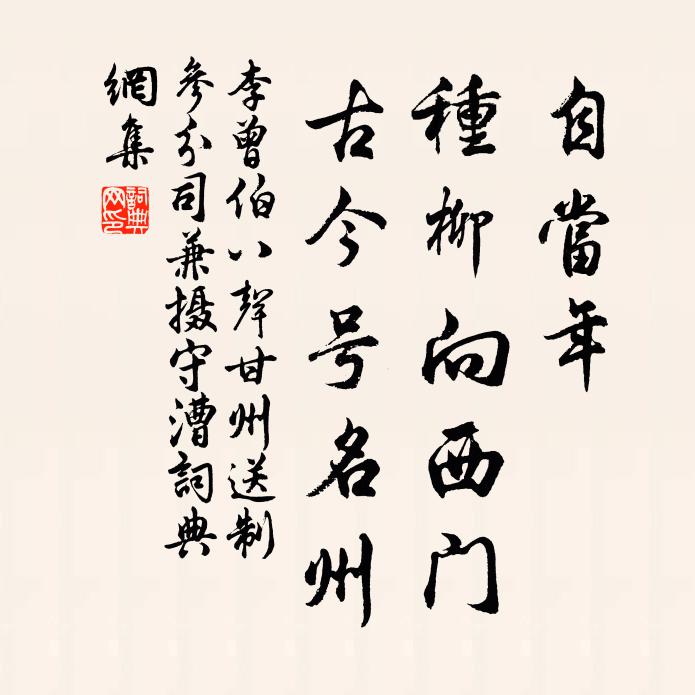 自當年
種柳向西门
古今号名州
李曾伯八聲甘州送制
參分司兼摄守漕詞典
網集
詞典網印